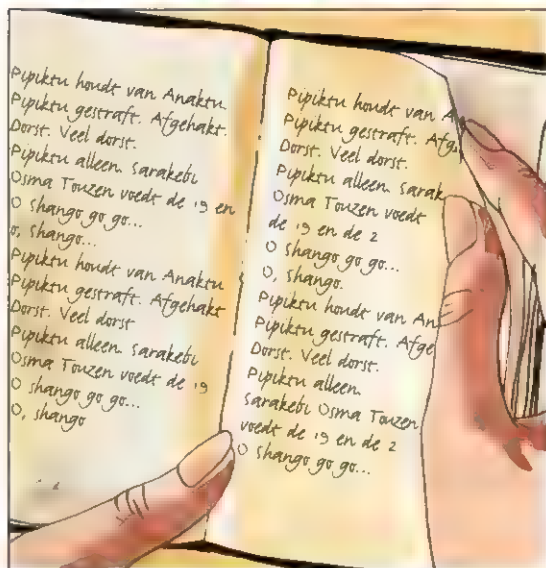 Pipiktu houdt van Anaktu.
Pipiktu gestraft. Afgehakt.
Dorst. Veel dorst.
Pipiktu alleen. Sarakebi
Osma Touzen voedt de 19 en
O shango go go...
o, shango...
Pipiktu houdt van Anaktu
Pipiktu gestraft. Afgehakt
Dorst. Veel dorst
Pipiktu alleen. Sarakebi
Osma Touzen voedt de 19
O shango go go...
O, shango
Pipiktu houdt van A
Pipiktu gestraft. Afg
Dorst. Veel dorst.
Pipiktu alleen. Sarak
Osma Touzen voedt
de 19 en de 2
O shango go go...
O, shango.
Pipiktu houdt van An
Pipiktu gestraft. Afge
Dorst. Veel dorst.
Pipiktu alleen.
Sarakebi Osma Touzen
voedt de 19 en de 2
O shango go go...